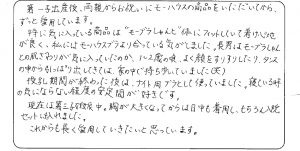 第一子出産後、両親からお祝いにモーハウスの商品をいただいてから、
ずっと愛用しています。
特に気に入っている商品は"モーブラしゃんと"体にフィットしていて着け心地
が良く、私にはモーハウスブラより合っている気がしました。長男はモーブラしゃんと
の肌ざわりが気に入っていたのか、1~2歳の頃、よく顔をすりすりしたり、タンス
の中から引っぱり出してきては、家の中で持ち歩いていました(笑)
授乳期間が終わった後は、ナイト用ブラとして使っていました。寝ている時
の気にならない程度の安定感が好きです。
現在は第三子妊娠中。胸が大きくなってからは日中も着用し、もちろん入院
セットに入れました。
これからも長く愛用していきたいと思っています。